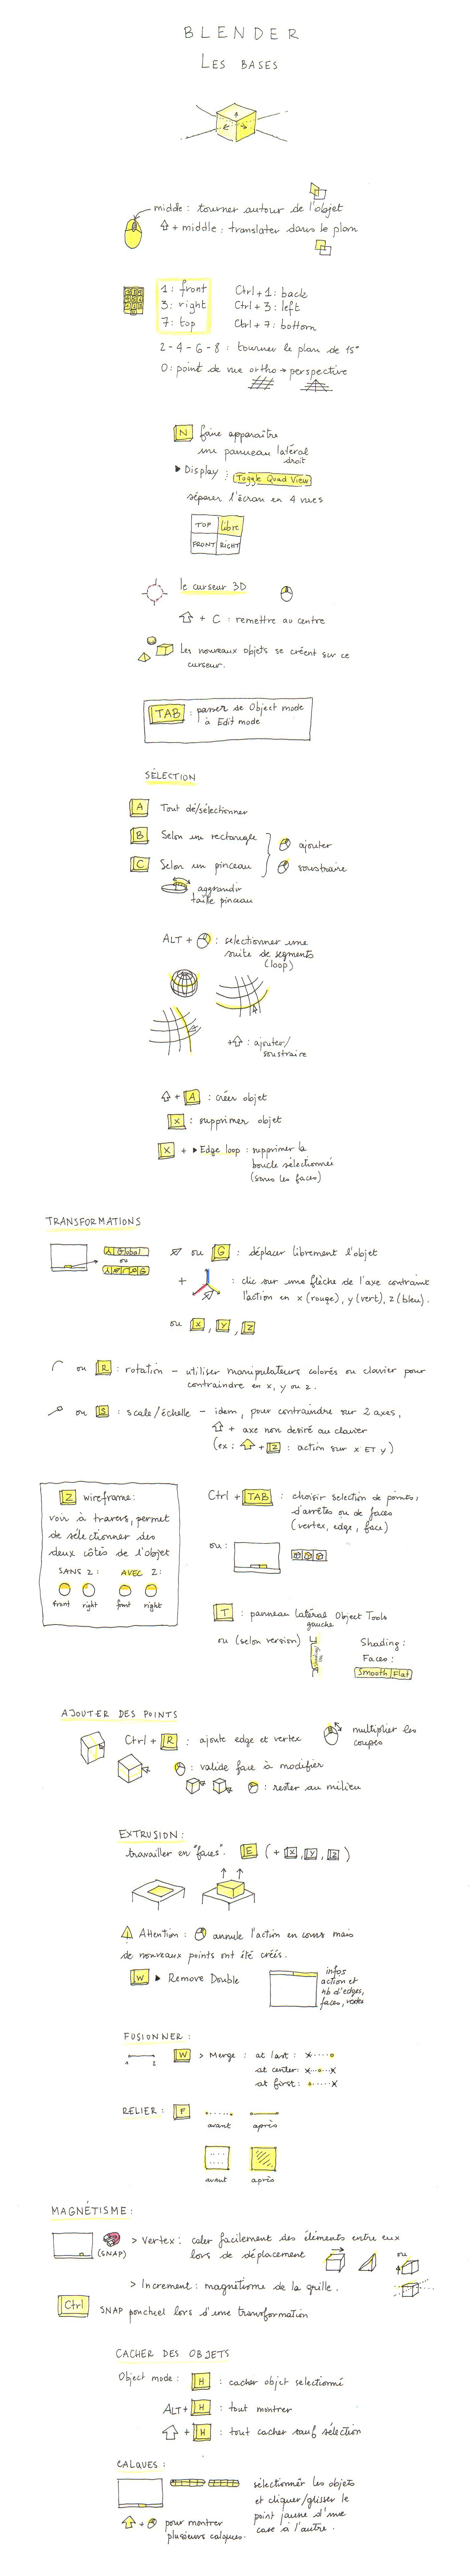 BLENDER
LES BASES
middle : tourner autour de l'objet
+ middle : translater dans le plan
1 : front
3 : right
7 : top
Ctrl + 1 : back
Ctrl + 3 : left
Ctrl + 7 : bottom
2 - 4 - 6 - 8 : tourner le plan de 15°
0 : point de vue ortho → perspective
N faire apparaître
une panneau latéral
droit
Display : Toggle Quad View
séparer l'écran en 4 vues
TOP libre
FRONT RIGHT
le curseur 3D
+ C : remettre au centre
Les nouveaux objets se créent sur ce
curseur.
TAB : passer de Object mode
à Edit mode
SÉLECTION
A Tout dé/sélectionner
B Selon un rectangle
C Selon un pinceau
ajouter
soustraire
aggrandir
taille pinceau
ALT + : sélectionner une
suite de segments
(loop)
+ : ajouter/
soustraire
+ A : créer objet
X : supprimer objet
X + Edge loop : supprimer la
boucle sélectionnée
(sans les faces)
TRANSFORMATIONS
Global
ou
ou G : déplacer librement l'objet
+ : clic sur une flèche de l'axe contraint
l'action en x (rouge), y (vert), z (bleu).
ou X, Y, Z
ou R : rotation - utiliser manipulateurs colorés ou clavier pour
contraindre en x, y ou z.
ou S : scale/échelle - idem, pour contraindre sur 2 axes,
+ axe non desiré au clavier
(ex : + Z : action sur x ET y)
Z wireframe :
voir à travers, permet
de sélectionner des
deux côtés de l'objet
SANS Z : AVEC Z :
front right front right
Ctrl + TAB : choisir selection de points,
d'arrêtes ou de faces
(vertex, edge, face)
ou :
T : panneau latéral Object Tools
gauche
ou (selon version)
Shading :
Faces :
Smooth Flat
AJOUTER DES POINTS
Ctrl + R : ajoute edge et vertex
multiplier les
coupes
: valide face à modifier
: rester au milieu
EXTRUSION :
travailler en "faces". E (+ X, Y, Z)
Attention : annule l'action en cours mais
de nouveaux points ont été créés.
W Remove Double
infos
action et
nb d'edges,
faces, vertex
FUSIONNER :
1 2
W > Merge : at last :
at center :
at first :
RELIER : F
avant après
avant après
MAGNÉTISME :
(SNAP)
> Vertex : caler facilement des éléments entre eux
lors de déplacement
ou
> Increment : magnétisme de la grille.
Ctrl SNAP ponctuel lors d'une transformation
CACHER DES OBJETS
Object mode : H : cacher objet selectionné
ALT + H : tout montrer
+ H : tout cacher sauf sélection
CALQUES :
sélectionner les objets
et cliquer/glisser le
point jaune d'une
case à l'autre.
+ pour montrer
plusieurs calques.